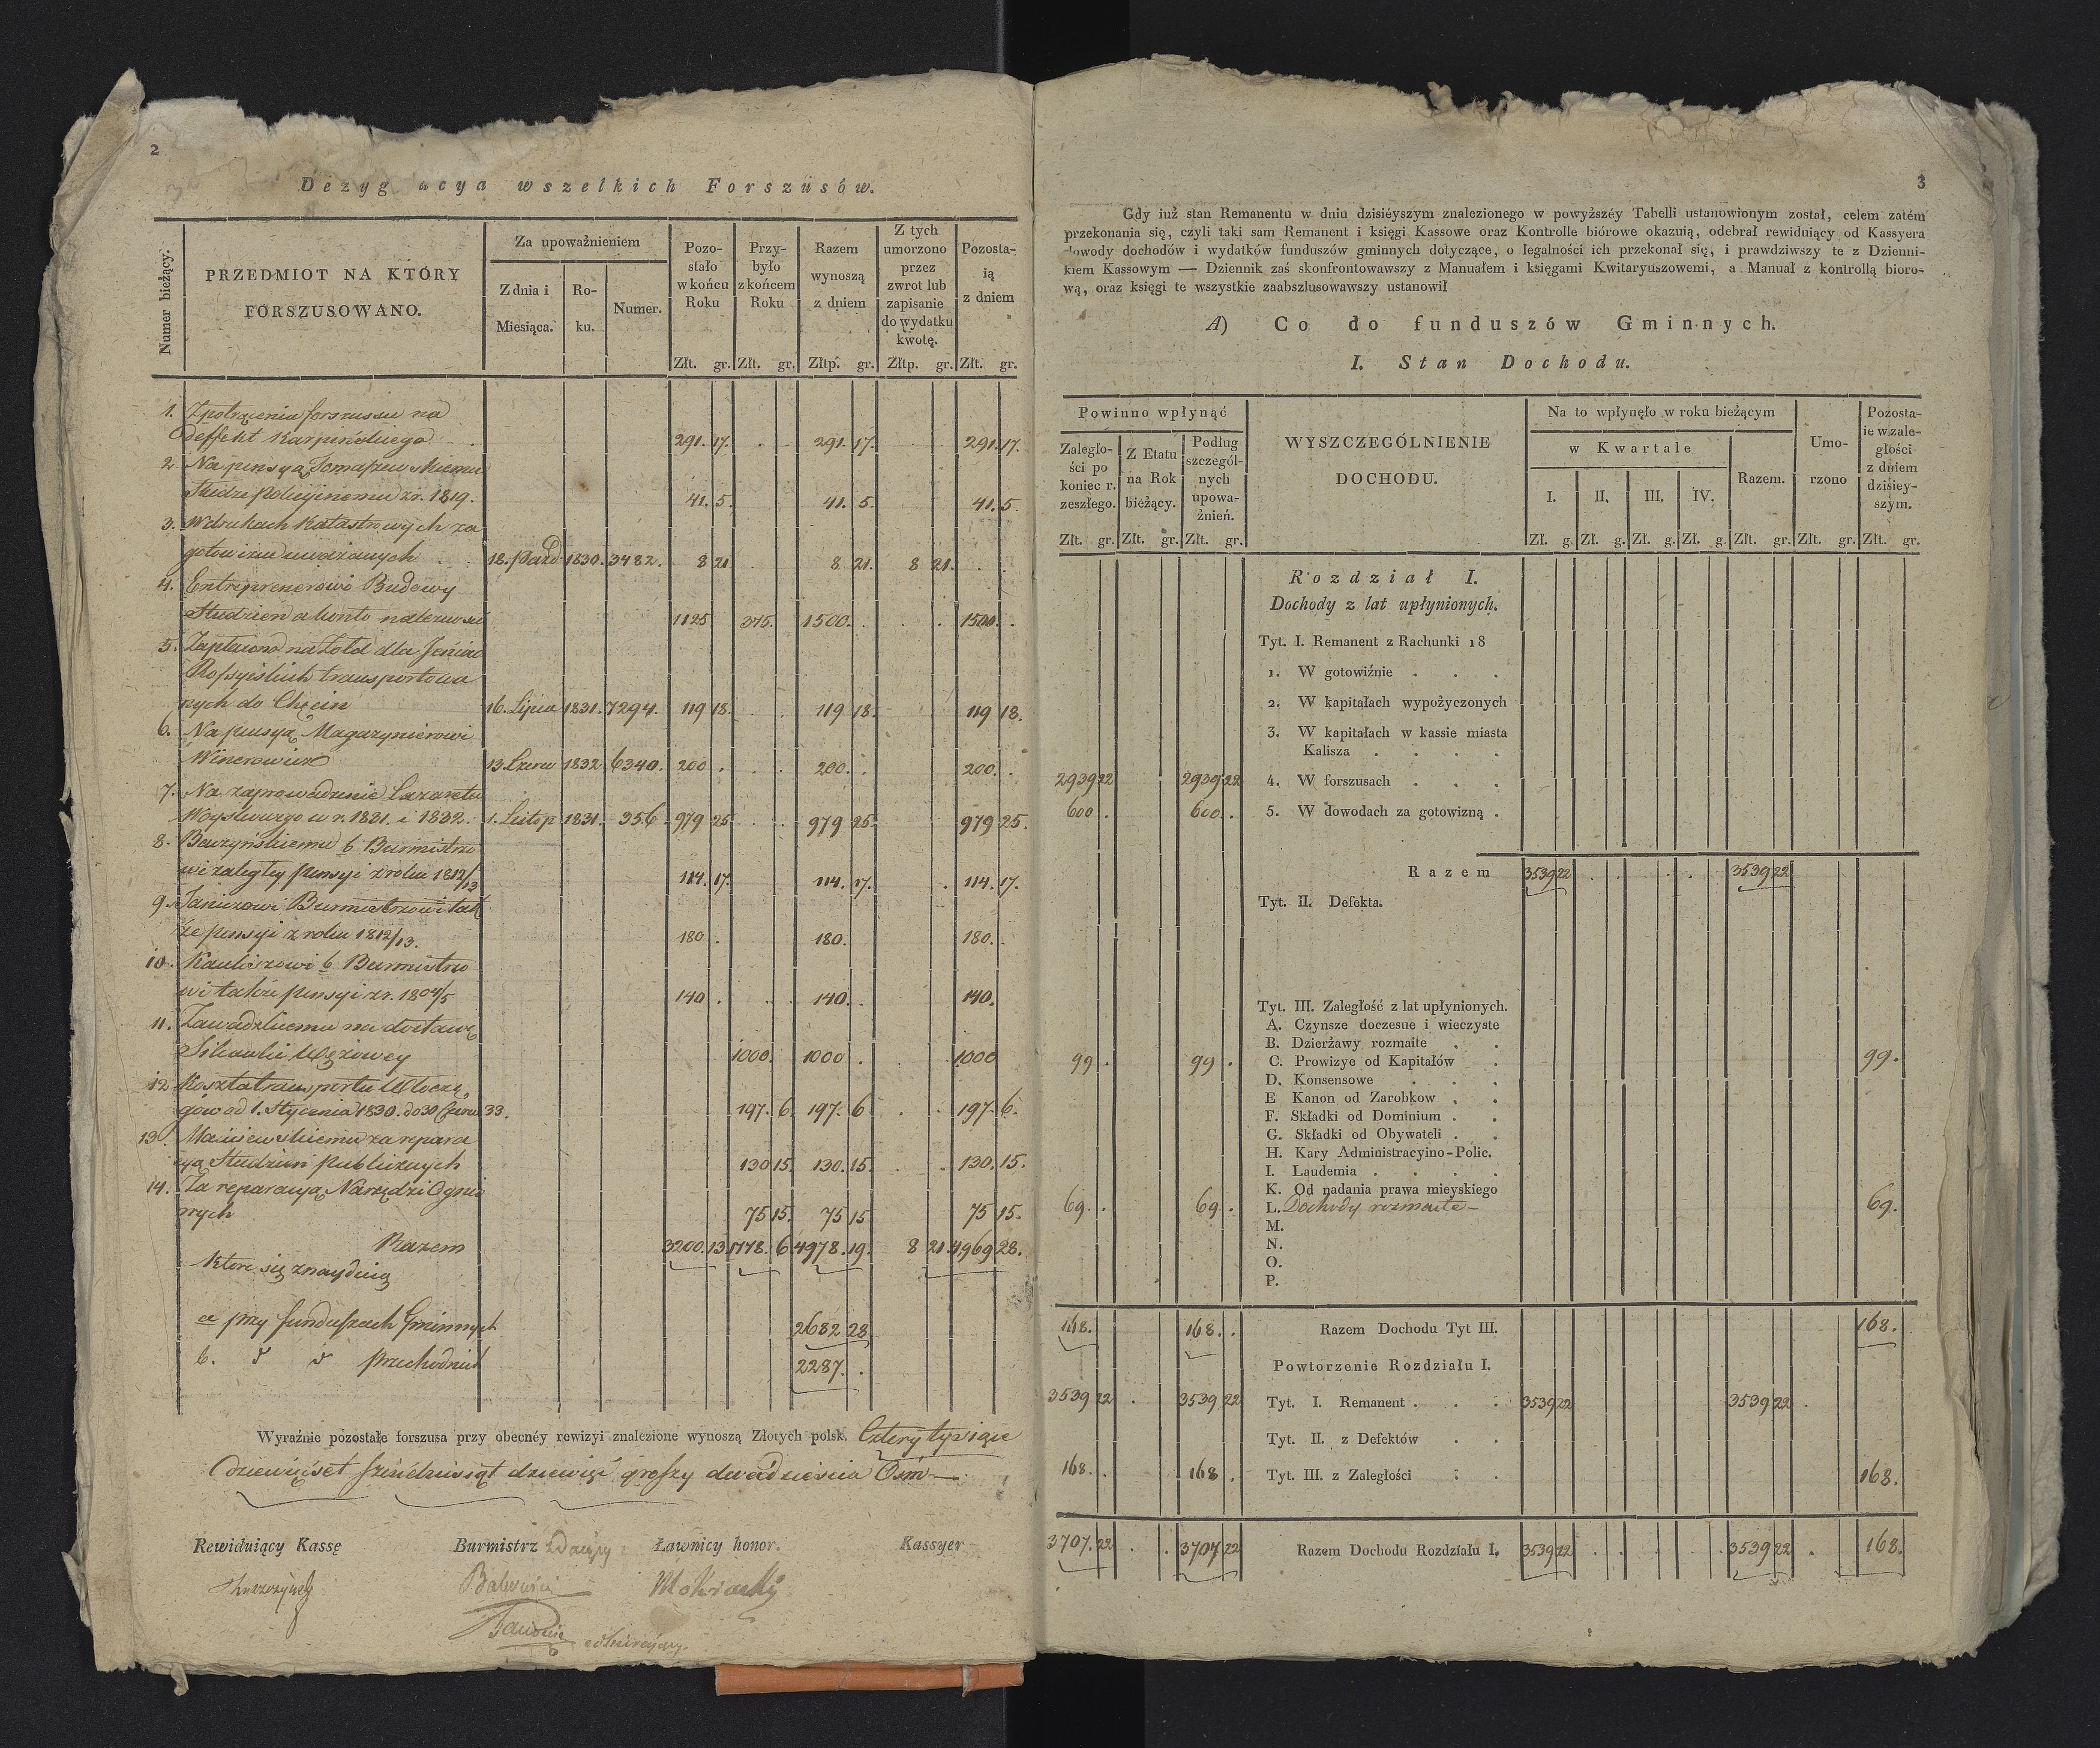 2
Dezyg acya wszelkich Forszusów.
Numer bieżący.
PRZEDMIOT NA KTÓRY
FORSZUSOWANO.
Za upoważnieniem
Z dnia i
Miesiąca.
Ro-
ku.
Numer.
Pozo-
stało
w końcu
Roku
Przy-
było
z końcem
Roku
Razem
wynoszą
z dniem
Z tych
umorzono
przez
zwrot lub
zapisanie
do wydatku
kwotę.
Pozosta-
ią
z dniem
Złt. gr. Złt. gr. Złtp. gr. Złtp. gr. Złt. gr.
1. Zpotrącenia forszussu na
deffekt Karpińskiego 291. 17. 291. 17. 291. 17.
2. Na pensyą Tomaszewskiemu
Słudze policyinemu z r. 1819. 41. 5. 41. 5. 41. 5.
3. W drukach Katastrowych za
gotowiznę uważanych 18. Paźd. 1830. 3482. 8 21 8 21. 8 21.
4. Entreprenerowi Budowy
Studzien a konto należności 1125 375. 1500. 1500.
5. Zapłacono na Żołd dla Jeńców
Rossyiskich transportowa
nych do Chęcin 16. Lipca 1831. 7294. 119 18. 119 18. 119 18.
6. Na pensyą Magazynierowi
13. Czerw 1832. 6340. 200. 200. 200.
7. Na zaprowadzenie Lazaretu
Woyskowego w r. 1831. i 1832. 1. Listop 1831. 356. 979 25. 979 25. 979 25.
8. b Burmistrzo
wi zaległey pensyi z roku 1812/13 114. 17. 114. 17. 114. 17.
9. Burmistrzowi tak
że pensyi z roku 1812/13. 180. 180. 180.
10. b Burmistrzo
wi także pensyi z r. 1804/5 140. 140. 140.
11. Zawadzkiemu na dostawę
Sikawki Wężowey 1000. 1000. 1000
12. Koszta transportu Włóczę
gów od 1. Stycznia 1830. do 30 Czerw 33. 197. 6. 197. 6 197. 6.
13. za repara
cyą Studzien publicznych 130 15. 130. 15. 130. 15.
14. Za reparacyą Narzędzi Ognio
wych 75 15. 75 15 75 15.
Razem 3200. 13. 1778. 6 4978. 19. 8 21. 4969 28.
Które się znayduią
a przy funduszach Gminnych 2682 28
b. przechodnich 2287.
Wyraźnie pozostałe forszusa przy obecnéy rewizyi znalezione wynoszą Złotych polsk. Cztery tysiące
dziewięćset sześćdziesiąt dziewięć groszy dwadzieścia Ośm —
Rewiduiący Kassę Burmistrz Ławnicy honor. Kassyer
3
Gdy iuż stan Remanentu w dniu dzisiéyszym znalezionego w powyższéy Tabelli ustanowionym został, celem zatém
przekonania się, czyli taki sam Remanent i księgi Kassowe oraz Kontrolle biórowe okazuią, odebrał rewiduiący od Kassyera
dowody dochodów i wydatków funduszów gminnych dotyczące, o legalności ich przekonał się, i prawdziwszy te z Dzienni-
kiem Kassowym — Dziennik zaś skonfrontowawszy z Manuałem i księgami Kwitaryuszowemi, a Manuał z kontrollą bioro-
wą, oraz księgi te wszystkie zaabszlusowawszy ustanowił
A) Co do funduszów Gminnych.
I. Stan Dochodu.
Powinno wpłynąć
Zaległo-
ści po
koniec r.
zeszłego.
Z Etatu
na Rok
bieżący.
Podług
szczegól-
nych
upowa-
żnień.
WYSZCZEGÓLNIENIE
DOCHODU.
Na to wpłynęło w roku bieżącym
w Kwartale
I. II. III. IV.
Razem.
Umo-
rzono
Pozosta-
ie w zale-
głości
z dniem
dzisiey-
szym.
Złt. gr. Złt. gr. Złt. gr. Zł. g. Zł. g. Zł. g. Zł. g. Złt. gr. Złt. gr. Złt. gr.
Rozdział I.
Dochody z lat upłynionych.
Tyt. I. Remanent z Rachunki 18
1. W gotowiźnie . . .
2. W kapitałach wypożyczonych
3. W kapitałach w kassie miasta
Kalisza . . . .
2939 22 2939 22 4. W forszusach . . .
600 . 600. . 5. W dowodach za gotowizną .
Razem 3539 22 3539 22
Tyt. II. Defekta.
Tyt. III. Zaległość z lat upłynionych.
A. Czynsze doczesue i wieczyste
B. Dzierżawy rozmaite . .
99 . 99 . C. Prowizye od Kapitałów . 99.
D. Konsensowe . . .
E Kanon od Zarobkow . .
F. Składki od Dominium . .
G. Składki od Obywateli . .
H. Kary Administracyino-Polic.
I. Laudemia . . . .
K. Od nadania prawa mieyskiego
69. . 69. . L. Dochody rozmaite — 69.
M.
N.
O.
P.
168. 168. . Razem Dochodu Tyt III. 168.
Powtorzenie Rozdziału I.
3539 22 3539 22 Tyt. I. Remanent . . . 3539 22 3539 22
Tyt. II. z Defektów . .
168. . 168 . Tyt. III. z Zaległości . . 168.
3707. 22 3707 22 Razem Dochodu Rozdziału I. 3539 22 3539 22 168.